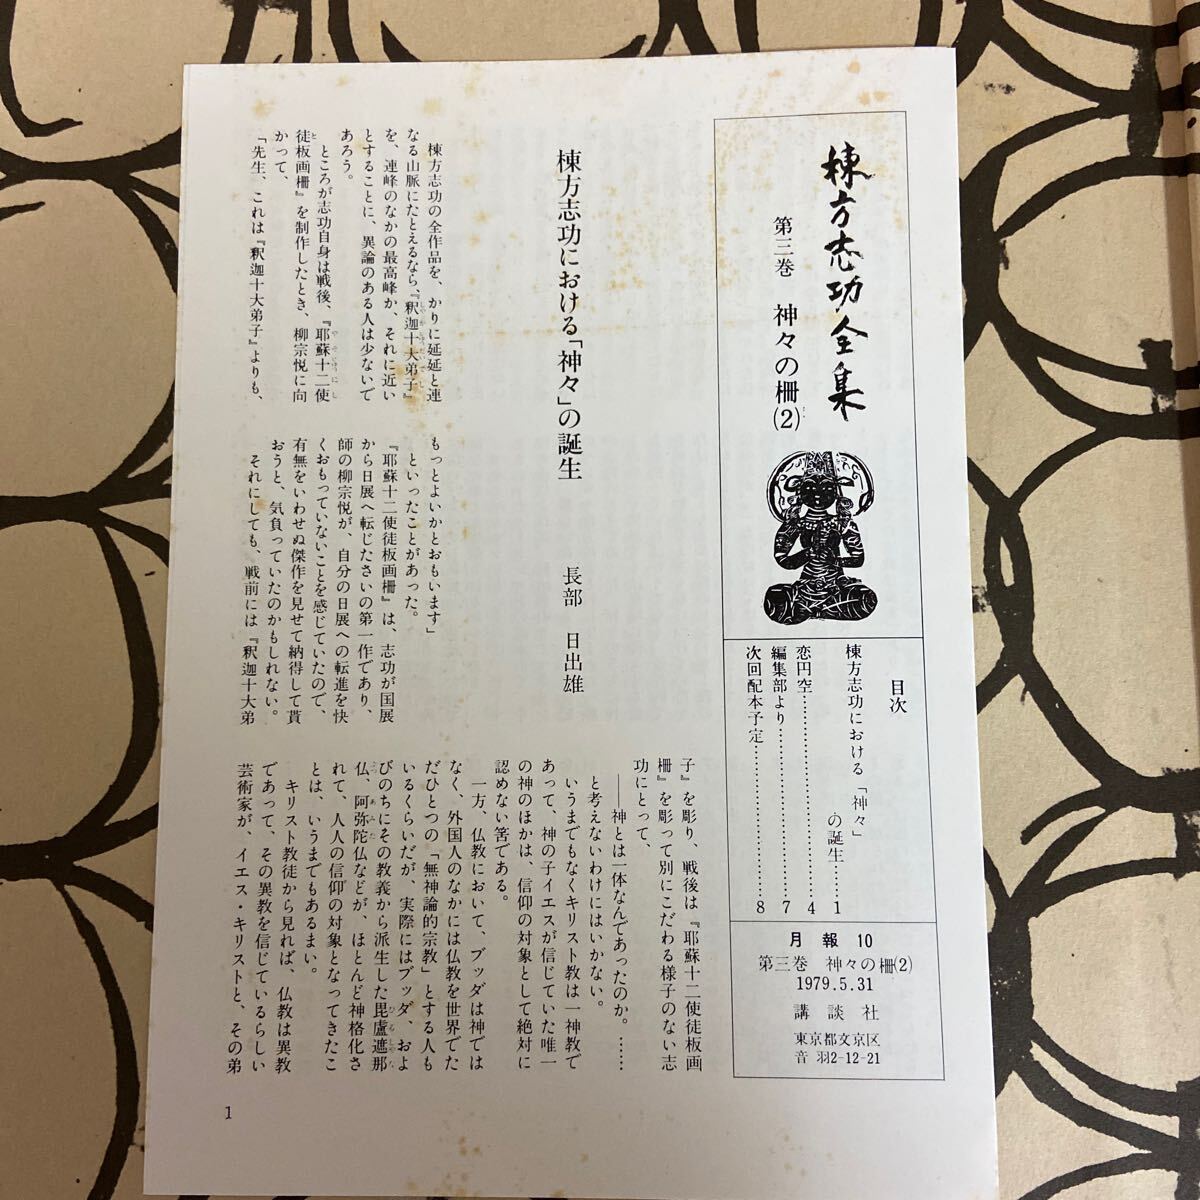 棟方志功全集
第三巻 神々の柵(2)
目次
棟方志功における「神々」
の誕生……1
恋円空……4
編集部より……7
次回配本予定……8
月報 10
第三巻 神々の柵(2)
1979.5.31
講談社
東京都文京区
音羽2-12-21
棟方志功における「神々」の誕生
長部 日出雄
棟方志功の全作品を、かりに延延と連
なる山脈にたとえるなら、『釈迦十大弟子』
を、連峰のなかの最高峰か、それに近い
とすることに、異論のある人は少ないで
あろう。
ところが志功自身は戦後、『耶蘇十二使
徒板画柵』を制作したとき、柳宗悦に向
かって、
「先生、これは『釈迦十大弟子』よりも、
もっとよいかとおもいます」
といったことがあった。
『耶蘇十二使徒板画柵』は、志功が国展
から日展へ転じたさいの第一作であり、
師の柳宗悦が、自分の日展への転進を快
くおもっていないことを感じていたので、
有無をいわせぬ傑作を見せて納得して貰
おうと、気負っていたのかもしれない。
それにしても、戦前には『釈迦十大弟
子』を彫り、戦後は『耶蘇十二使徒板画
柵』を彫って別にこだわる様子のない志
功にとって、
――神とは一体なんであったのか。……
と考えないわけにはいかない。
いうまでもなくキリスト教は一神教で
あって、神の子イエスが信じていた唯一
の神のほかは、信仰の対象として絶対に
認めない筈である。
一方、仏教において、ブッダは神では
なく、外国人のなかには仏教を世界でた
だひとつの「無神論的宗教」とする人も
いるくらいだが、実際にはブッダ、およ
びのちにその教義から派生した毘盧遮那
仏、阿弥陀仏などが、ほとんど神格化さ
れて、人人の信仰の対象となってきたこ
とは、いうまでもあるまい。
キリスト教徒から見れば、仏教は異教
であって、その異教を信じているらしい
芸術家が、イエス・キリストと、その弟
1